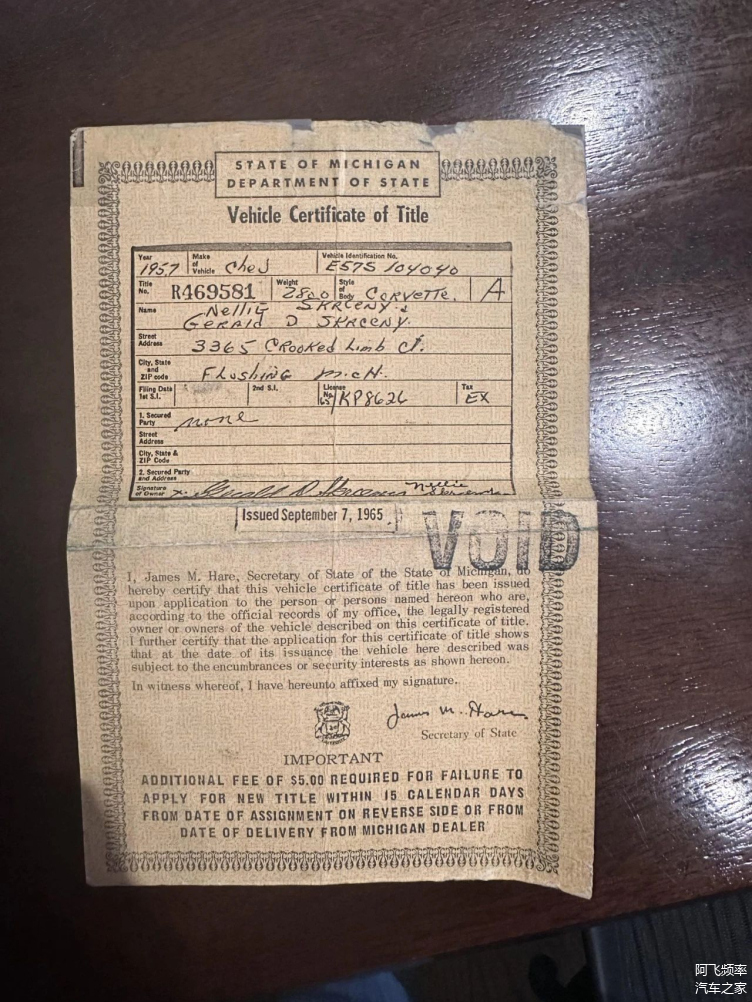 STATE OF MICHIGAN
DEPARTMENT OF STATE
Vehicle Certificate of Title
Year 1957 Make of Vehicle Chev Vehicle Identification No. E57S 104040
Title No. R469581 Weight 2800 Style of Body CORVETTE. A
Name Nellie SKRCENY &
GERALD D SKRCENY.
Street Address 3365 CROOKED Limb CT.
City, State and ZIP code FLUSHING MICH.
Filing Date 1st S.I. 2nd S.I. License No. 65/KP8626 Tax EX
1. Secured Party none
Street Address
City, State & ZIP Code
2. Secured Party and Address
Signature of Owner x Gerald D. Nellie
Issued September 7, 1965
VOID
I, James M. Hare, Secretary of State of the State of Michigan, do
hereby certify that this vehicle certificate of title has been issued
upon application to the person or persons named hereon who are,
according to the official records of my office, the legally registered
owner or owners of the vehicle described on this certificate of title.
I further certify that the application for this certificate of title shows
that at the date of its issuance the vehicle here described was
subject to the encumbrances or security interests as shown hereon.
In witness whereof, I have hereunto affixed my signature.
James M. Hare
Secretary of State
IMPORTANT
ADDITIONAL FEE OF $5.00 REQUIRED FOR FAILURE TO
APPLY FOR NEW TITLE WITHIN 15 CALENDAR DAYS
FROM DATE OF ASSIGNMENT ON REVERSE SIDE OR FROM
DATE OF DELIVERY FROM MICHIGAN DEALER
阿飞频率
汽车之家